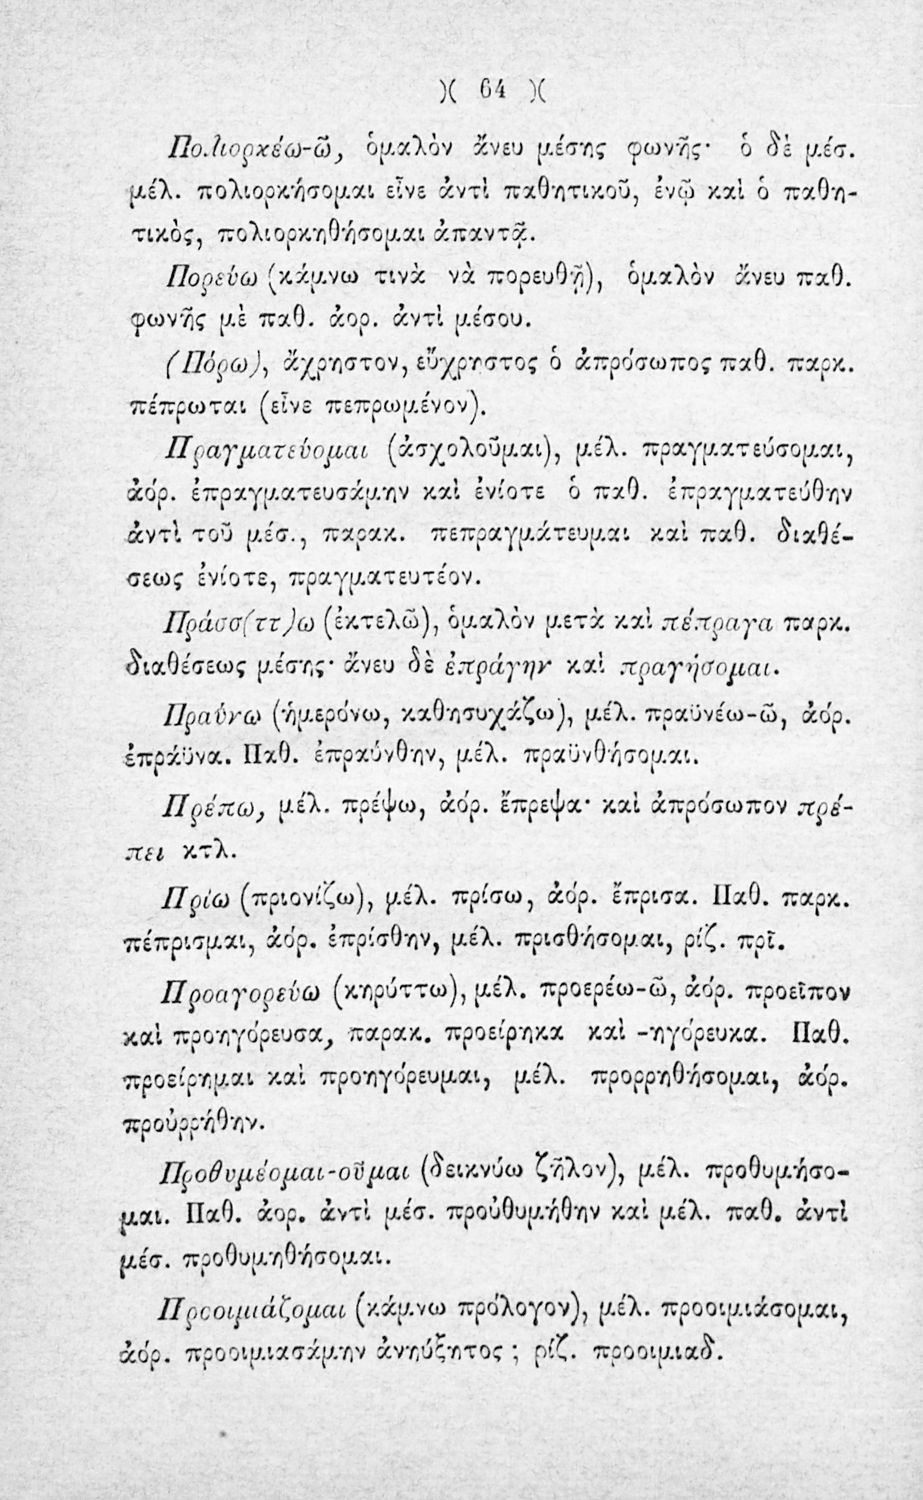 )( 64 )(
Πολιορκέω-ῶ, ὁμαλὸν ἄνευ μέσης φωνῆς· ὁ δὲ μέσ.
μέλ. πολιορκήσομαι εἶνε ἀντὶ παθητικοῦ, ἐνῷ καὶ ὁ παθη-
τικὸς, πολιορκηθήσομαι ἀπαντᾷ.
Πορεύω (κάμνω τινὰ νὰ πορευθῇ), ὁμαλὸν ἄνευ παθ.
φωνῆς μὲ παθ. ἀορ. ἀντὶ μέσου.
(Πόρω), ἄχρηστον, εὔχρηστος ὁ ἀπρόσωπος παθ. παρκ.
πέπρωται (εἶνε πεπρωμένον).
Πραγματεύομαι (ἀσχολοῦμαι), μέλ. πραγματεύσομαι,
ἀόρ. ἐπραγματευσάμην καὶ ἐνίοτε ὁ παθ. ἐπραγματεύθην
ἀντὶ τοῦ μέσ., παρακ. πεπραγμάτευμαι καὶ παθ. διαθέ-
σεως ἐνίοτε, πραγματευτέον.
Πράσσ(ττ)ω (ἐκτελῶ), ὁμαλὸν μετὰ καὶ πέπραγα παρκ.
διαθέσεως μέσης· ἄνευ δὲ ἐπράγην καὶ πραγήσομαι.
Πραΰνω (ἡμερόνω, καθησυχάζω), μέλ. πραϋνέω-ῶ, ἀόρ.
ἐπράϋνα. Παθ. ἐπραΰνθην, μέλ. πραϋνθήσομαι.
Πρέπω, μέλ. πρέψω, ἀόρ. ἔπρεψα· καὶ ἀπρόσωπον πρέ-
πει κτλ.
Πρίω (πριονίζω), μέλ. πρίσω, ἀόρ. ἔπρισα. Παθ. παρκ.
πέπρισμαι, ἀόρ. ἐπρίσθην, μέλ. πρισθήσομαι, ρίζ. πρῖ.
Προαγορεύω (κηρύττω), μέλ. προερέω-ῶ, ἀόρ. προεῖπον
καὶ προηγόρευσα, παρακ. προείρηκα καὶ -ηγόρευκα. Παθ.
προείρημαι καὶ προηγόρευμαι, μέλ. προρρηθήσομαι, ἀόρ.
προὐρρήθην.
Προθυμέομαι-οῦμαι (δεικνύω ζῆλον), μέλ. προθυμήσο-
μαι. Παθ. ἀορ. ἀντὶ μέσ. προὐθυμήθην καὶ μέλ. παθ. ἀντὶ
μέσ. προθυμηθήσομαι.
Προοιμιάζομαι (κάμνω πρόλογον), μέλ. προοιμιάσομαι,
ἀόρ. προοιμιασάμην ἀνηύξητος ; ρίζ. προοιμιαδ.